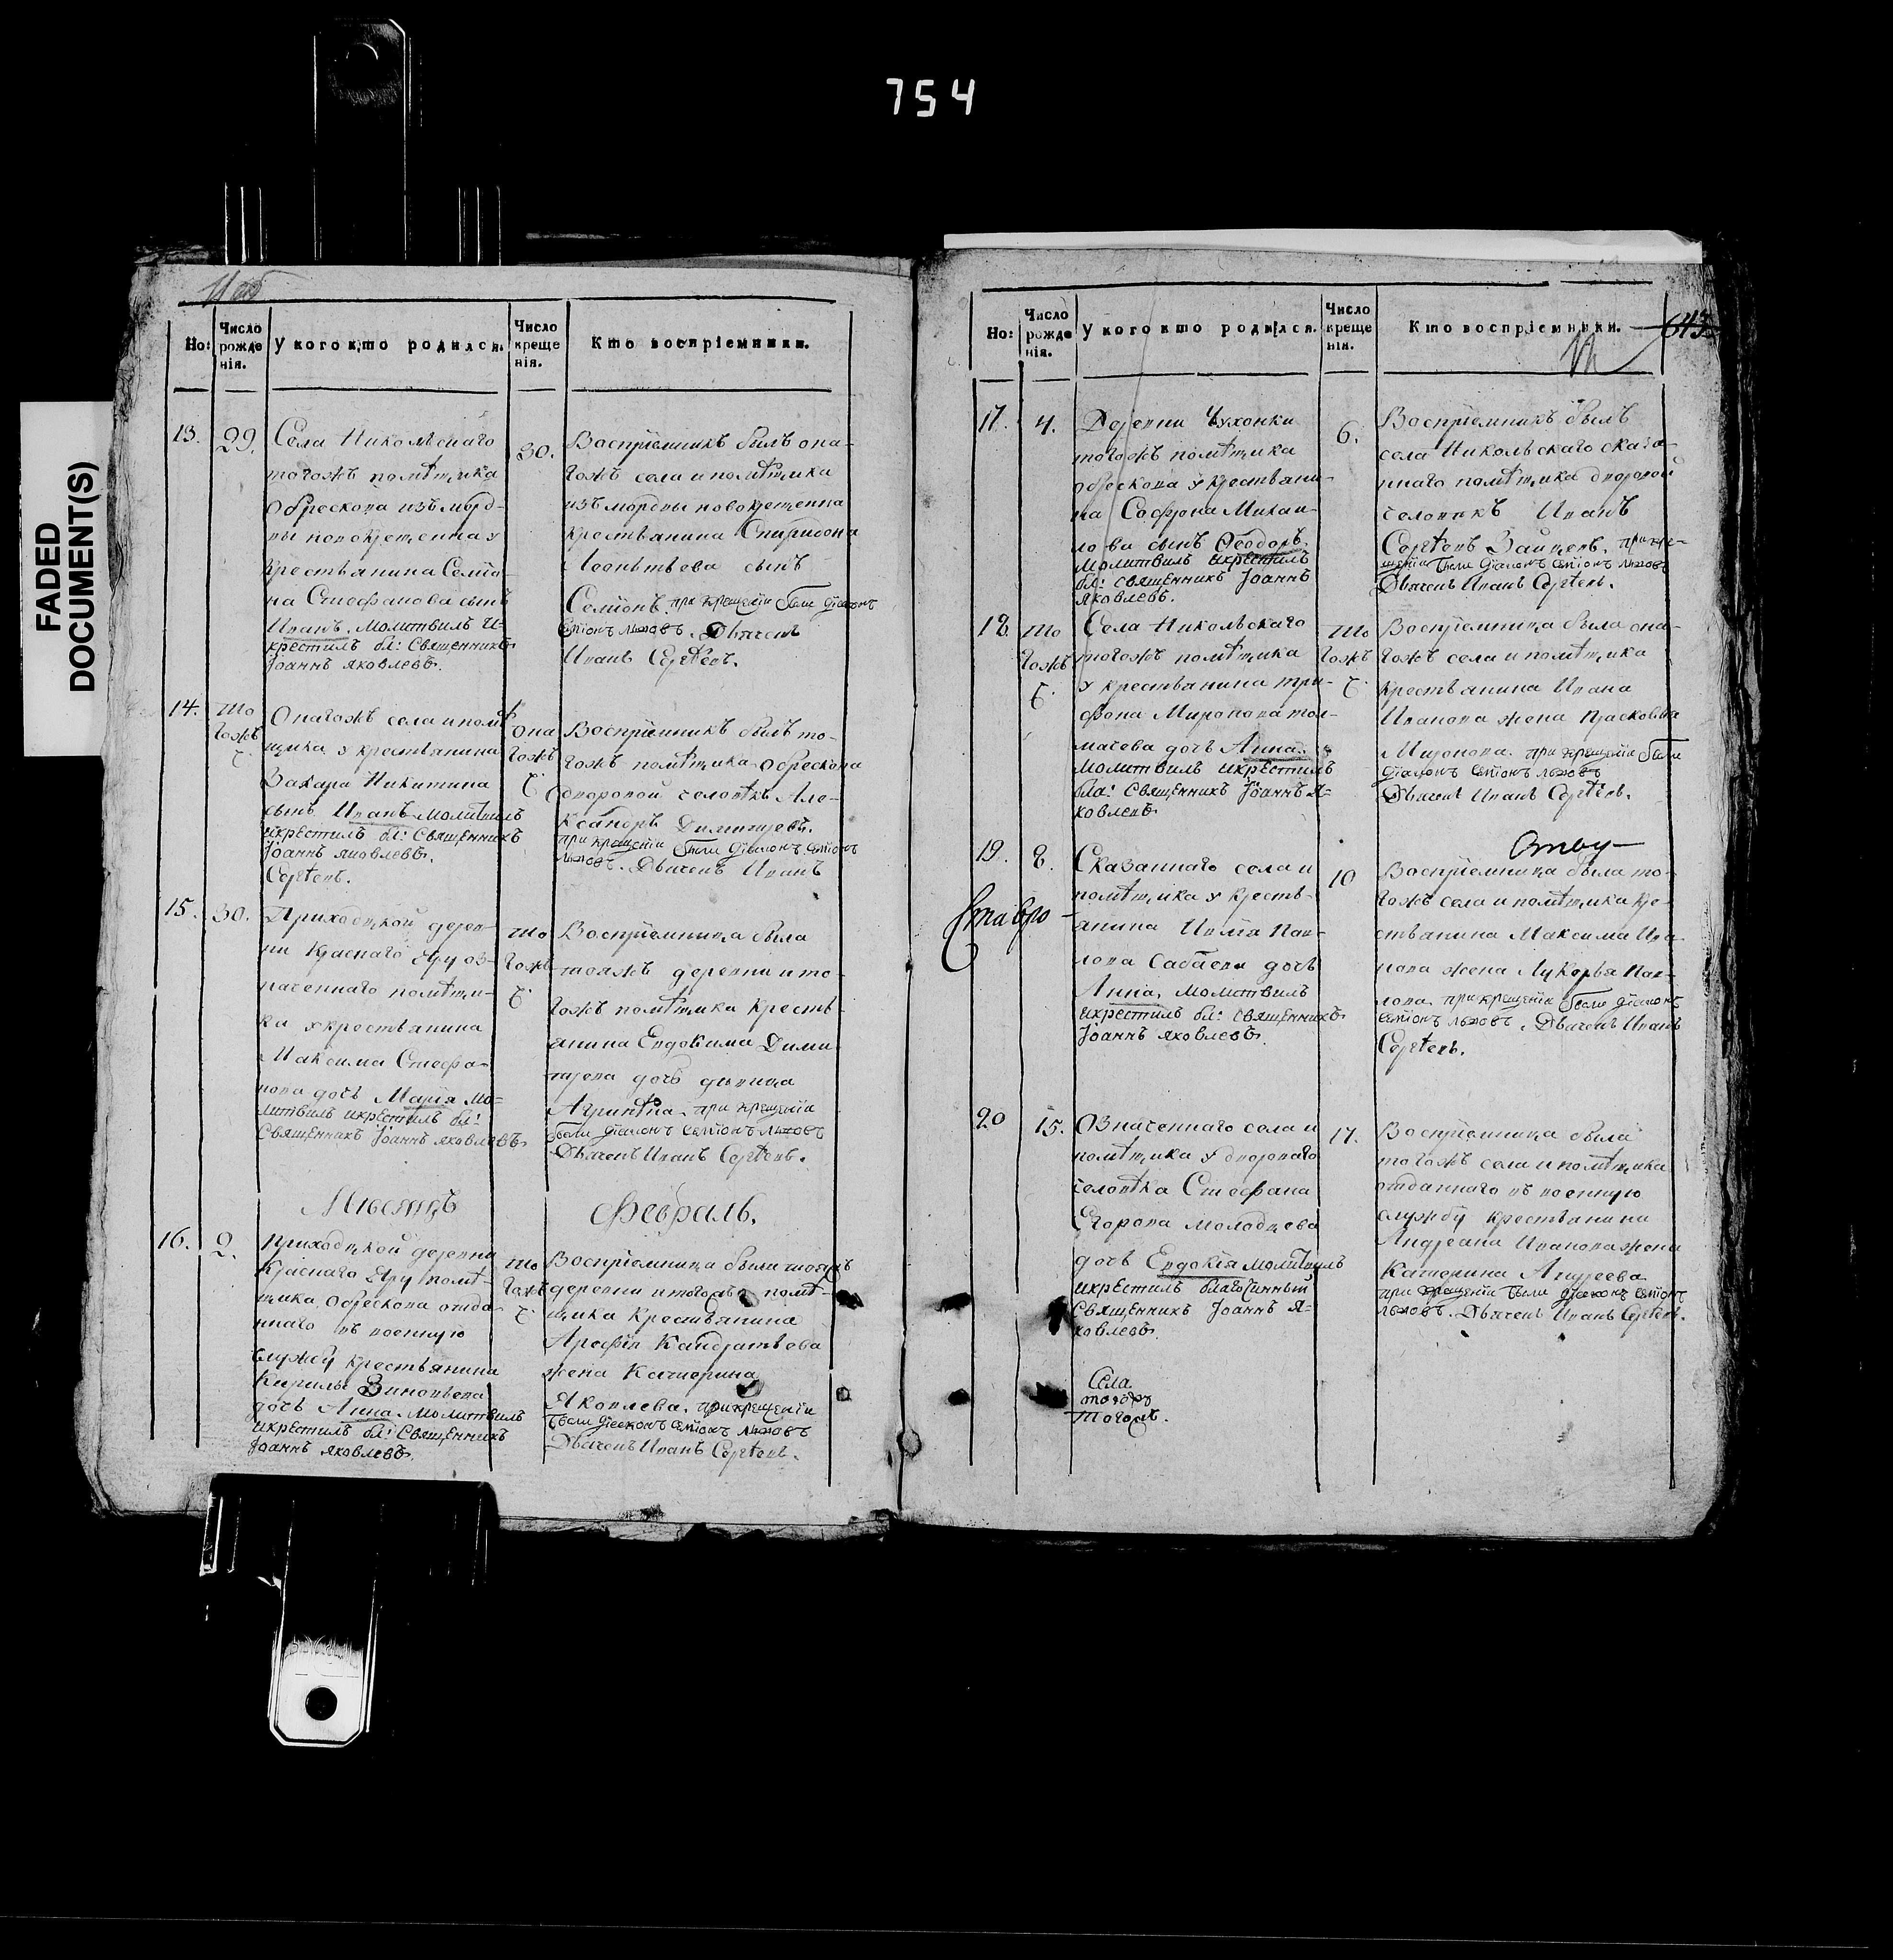 754
FADED
DOCUMENT(S)
11 об
Но:
Число рожденія.
У кого кто родился.
Число крещенія.
Кто воспріемники.
13.
29.
Села Никольскаго
тогожъ помѣщика
Обрескова изъ морд-
вы новокрещенна у
крестьянина Семіо-
на Стефанова сынъ
Иванъ. молитвилъ и-
крестилъ бл: Священникъ
Іоаннъ яковлевъ.
30.
Воспріемникъ былъ она-
гожъ села и помѣщика
изъ мордвы новокрещенна
крестьянина Спиридона
Леонтьева сынъ
Семіонъ. при крещеніи были діаконъ
семіонъ львовъ. Дьячекъ
Иванъ Сергѣевъ.
14.
то
гожъ
ч.
Онагожъ села и помѣ
щика у крестьянина
Захара Никитина
сынъ Иванъ молитвилъ
икрестилъ бл: Священникъ
Іоаннъ яковлевъ.
Сергѣевъ.
она
гожъ
ч.
Воспріемникъ былъ то-
гожъ помѣщика Обрескова
дворовой человѣкъ Але-
ксандръ Димитріевъ.
при крещеніи были діаконъ семіонъ
львовъ. Дьячекъ Иванъ
15.
30.
Приходцкой дерев-
ни Краснаго Яру оз-
наченнаго помѣщи-
ка у крестьянина
Максима Стефа-
нова дочь Марія мо-
литвилъ икрестилъ бл:
Священникъ Іоаннъ яковлевъ.
то
гожъ
ч.
Воспріемница была
тояжъ деревни и то-
гожъ помѣщика кресть-
янина Евдокима Дими-
тріева дочь дѣвица
Агрипѣна. при крещеніи
были діаконъ семіонъ львовъ
Дьячекъ Иванъ Сергѣевъ.
Мѣсяцъ
Февраль.
16.
2.
Приходцкой деревни
Краснаго Яру помѣ-
щика Обрескова отда-
ннаго въ военную
службу крестьянина
Кирилы Зиновьева
дочь Анна. молитвилъ
икрестилъ бл: Священникъ
Іоаннъ яковлевъ.
то
гожъ
ч.
Воспріемница были тояжъ
деревни и тогожъ помѣ-
щика Крестьянина
Арефія Кандратьева
жена Катерина
Яковлева. при крещеніи
были діаконъ семіонъ львовъ
Дьячекъ Иванъ Сергѣевъ.
Но:
Число рожденія.
У кого кто родился.
Число крещенія.
Кто воспріемники.
643
12
17.
4.
Деревни Чухонки
тогожъ помѣщика
Обрескова у крестьяни-
на Софрона Михаи-
лова сынъ Ѳеодоръ.
молитвилъ икрестилъ
бл: священникъ Іоаннъ
яковлевъ.
6.
Воспріемникъ былъ
села Никольскаго сказа-
ннаго помѣщика дворовой
человѣкъ Иванъ
Сергѣевъ Зайцевъ. при кре-
щеніи были діаконъ семіонъ львовъ
Дьячекъ Иванъ Сергѣевъ.
18
то
гожъ
ч.
Села Никольскаго
тогожъ помѣщика
у крестьянина Три-
фона Миронова тол-
мачева дочь Анна.
молитвилъ икрестилъ
бла: Священникъ Іоаннъ я-
ковлевъ.
то
гожъ
ч.
Воспріемница была она-
гожъ села и помѣщика
крестьянина Ивана
Иванова жена Прасковья
Миронова. при крещеніи были
діаконъ семіонъ львовъ
Дьячекъ Иванъ Сергѣевъ.
19.
8.
Сказаннаго села и
помѣщика у кресть-
янина Ивлія Пав-
лова Сабаева дочь
Анна. молитвилъ
икрестилъ бл: священникъ
Іоаннъ яковлевъ.
10
Воспріемница была то-
гожъ села и помѣщика кре-
стьянина Максима Ива-
нова жена Лукерья Пав-
лова. при крещеніи были діаконъ
семіонъ львовъ. Дьячекъ Иванъ
Сергѣевъ.
Ставро-
20
15.
Означеннаго села и
помѣщика у двороваго
человѣка Стефана
Егорова Молодцева
дочь Евдокія молитвилъ
икрестилъ благочинный
Священникъ Іоаннъ я-
ковлевъ.
17.
Воспріемница была
тогожъ села и помѣщика
отданнаго въ военную
службу крестьянина
Андреана Иванова жена
Катерина Андреева
при крещеніи были діаконъ семіонъ
львовъ. Дьячекъ Иванъ Сергѣевъ.
Села
тогожъ